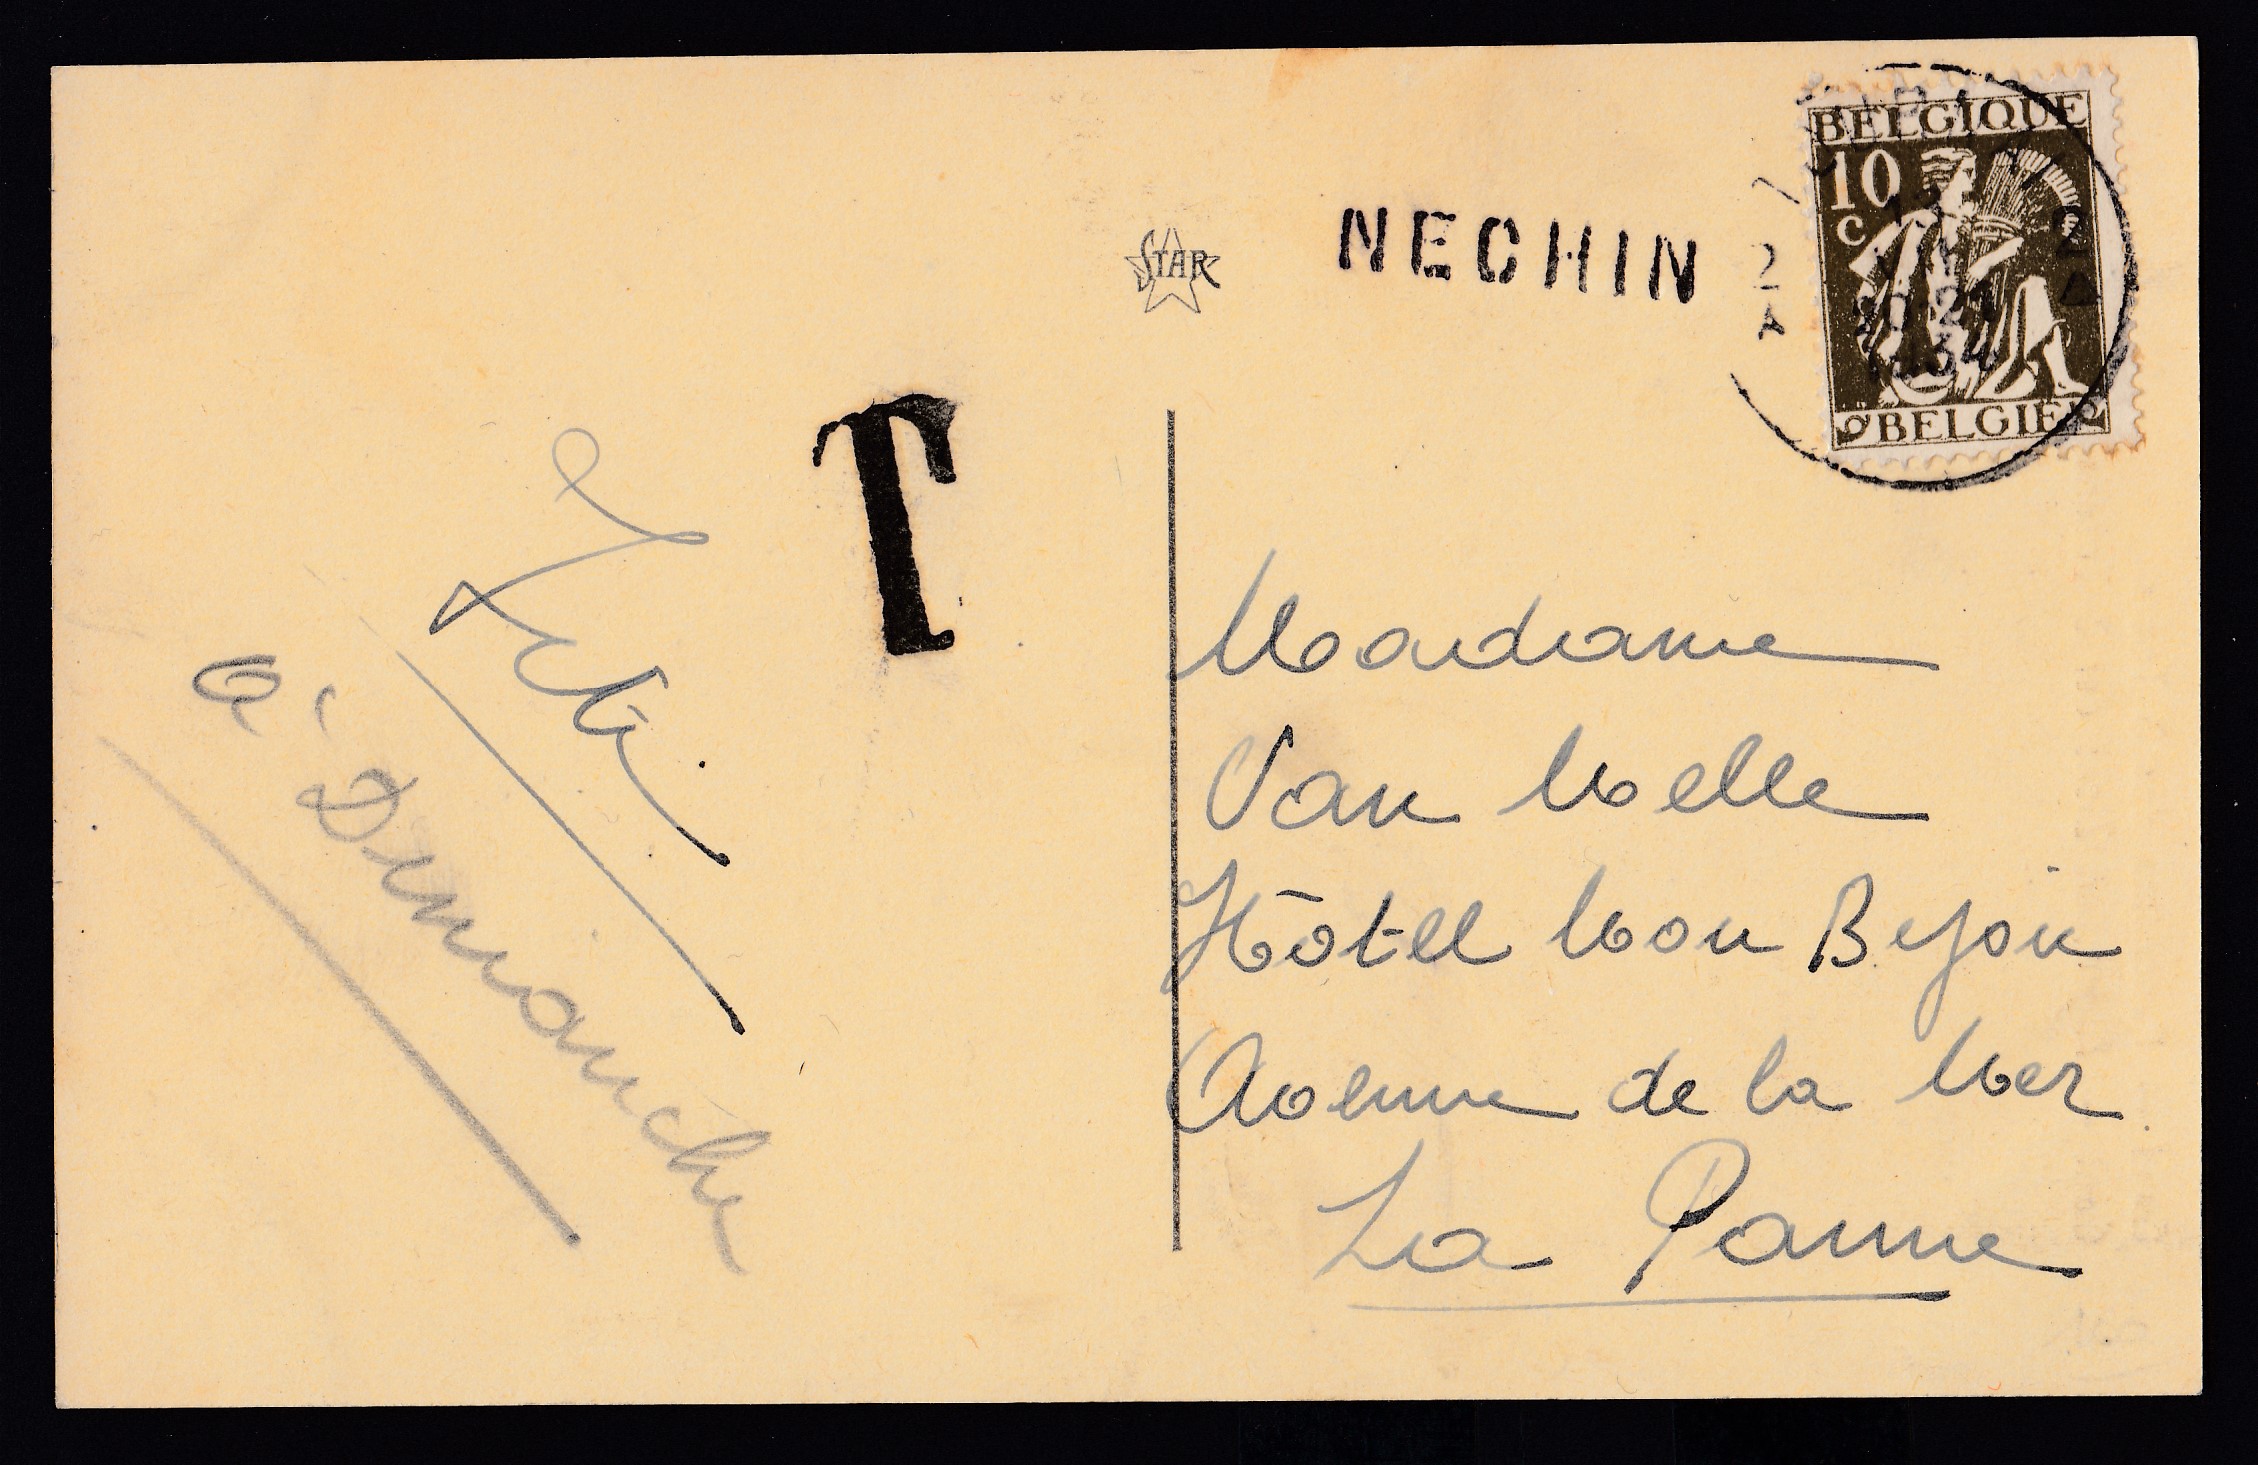 BELGIQUE
10
c
BELGIË
2
A
2
A
1934
NECHIN
STAR
T
à Dimanche
Madame
Van Melle
Hôtel Mon Bijou
Avenue de la Mer
La Panne